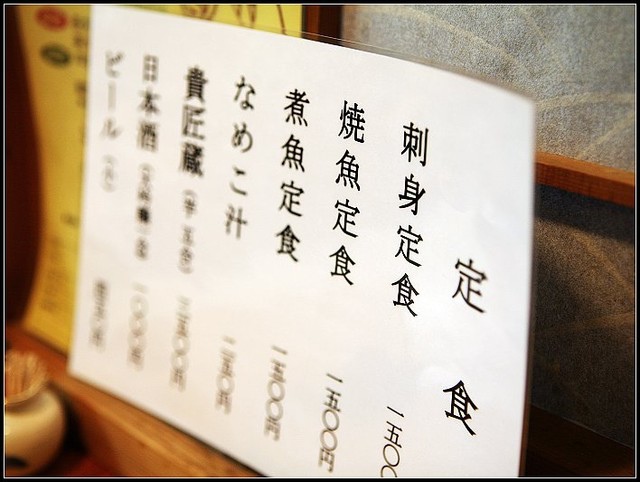 定食
刺身定食 一五〇〇
焼魚定食 一五〇〇円
煮魚定食 一五〇〇円
なめこ汁 二五〇円
貴匠蔵 二五〇〇円
日本酒 一〇〇〇円
ビール